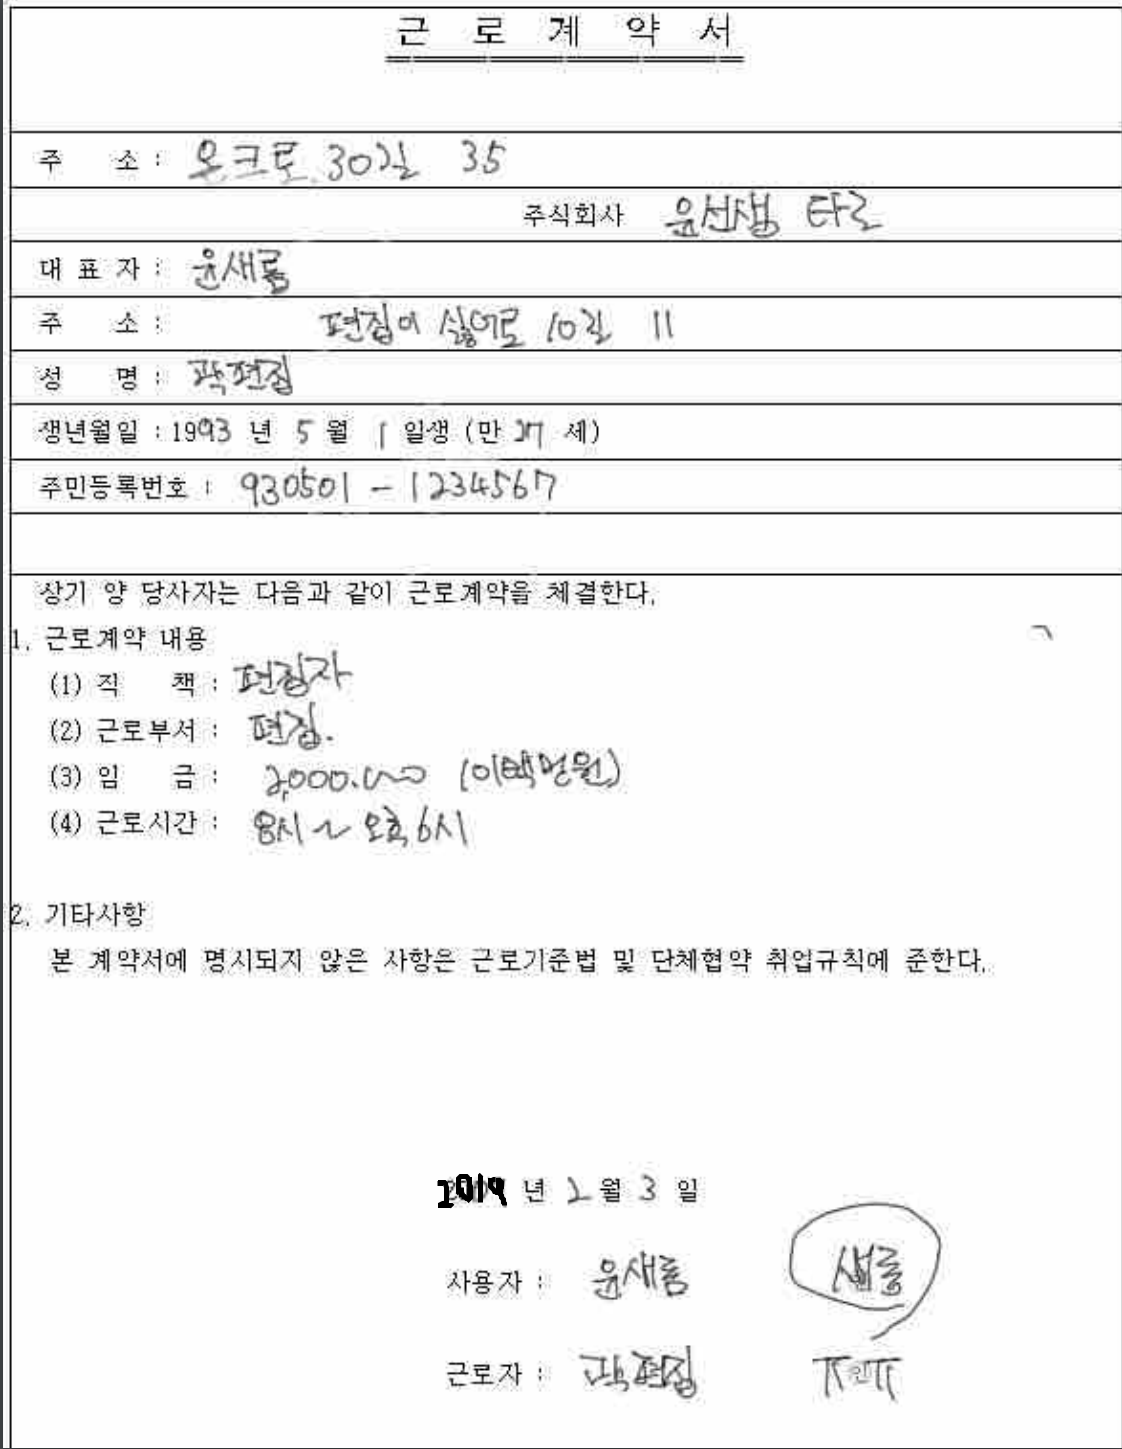 근 로 계 약 서
주 소 : 온크로 30길 35
주식회사 윤선생 타로
대 표 자 : 윤새롬
주 소 : 편집이 싫어로 10길 11
성 명 : 곽편집
생년월일 : 1993 년 5 월 1 일생 (만 27 세)
주민등록번호 : 930501 - 1234567
상기 양 당사자는 다음과 같이 근로계약을 체결한다.
1. 근로계약 내용
(1) 직 책 : 편집자
(2) 근로부서 : 편집.
(3) 임 금 : 2,000.000 (이백만원)
(4) 근로시간 : 8시 ~ 오후 6시
2. 기타사항
본 계약서에 명시되지 않은 사항은 근로기준법 및 단체협약 취업규칙에 준한다.
2019 년 2 월 3 일
사용자 : 윤새롬 새롬
근로자 : 곽편집 ㅠ인ㅠ